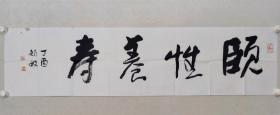 頤性養寿
丁酉